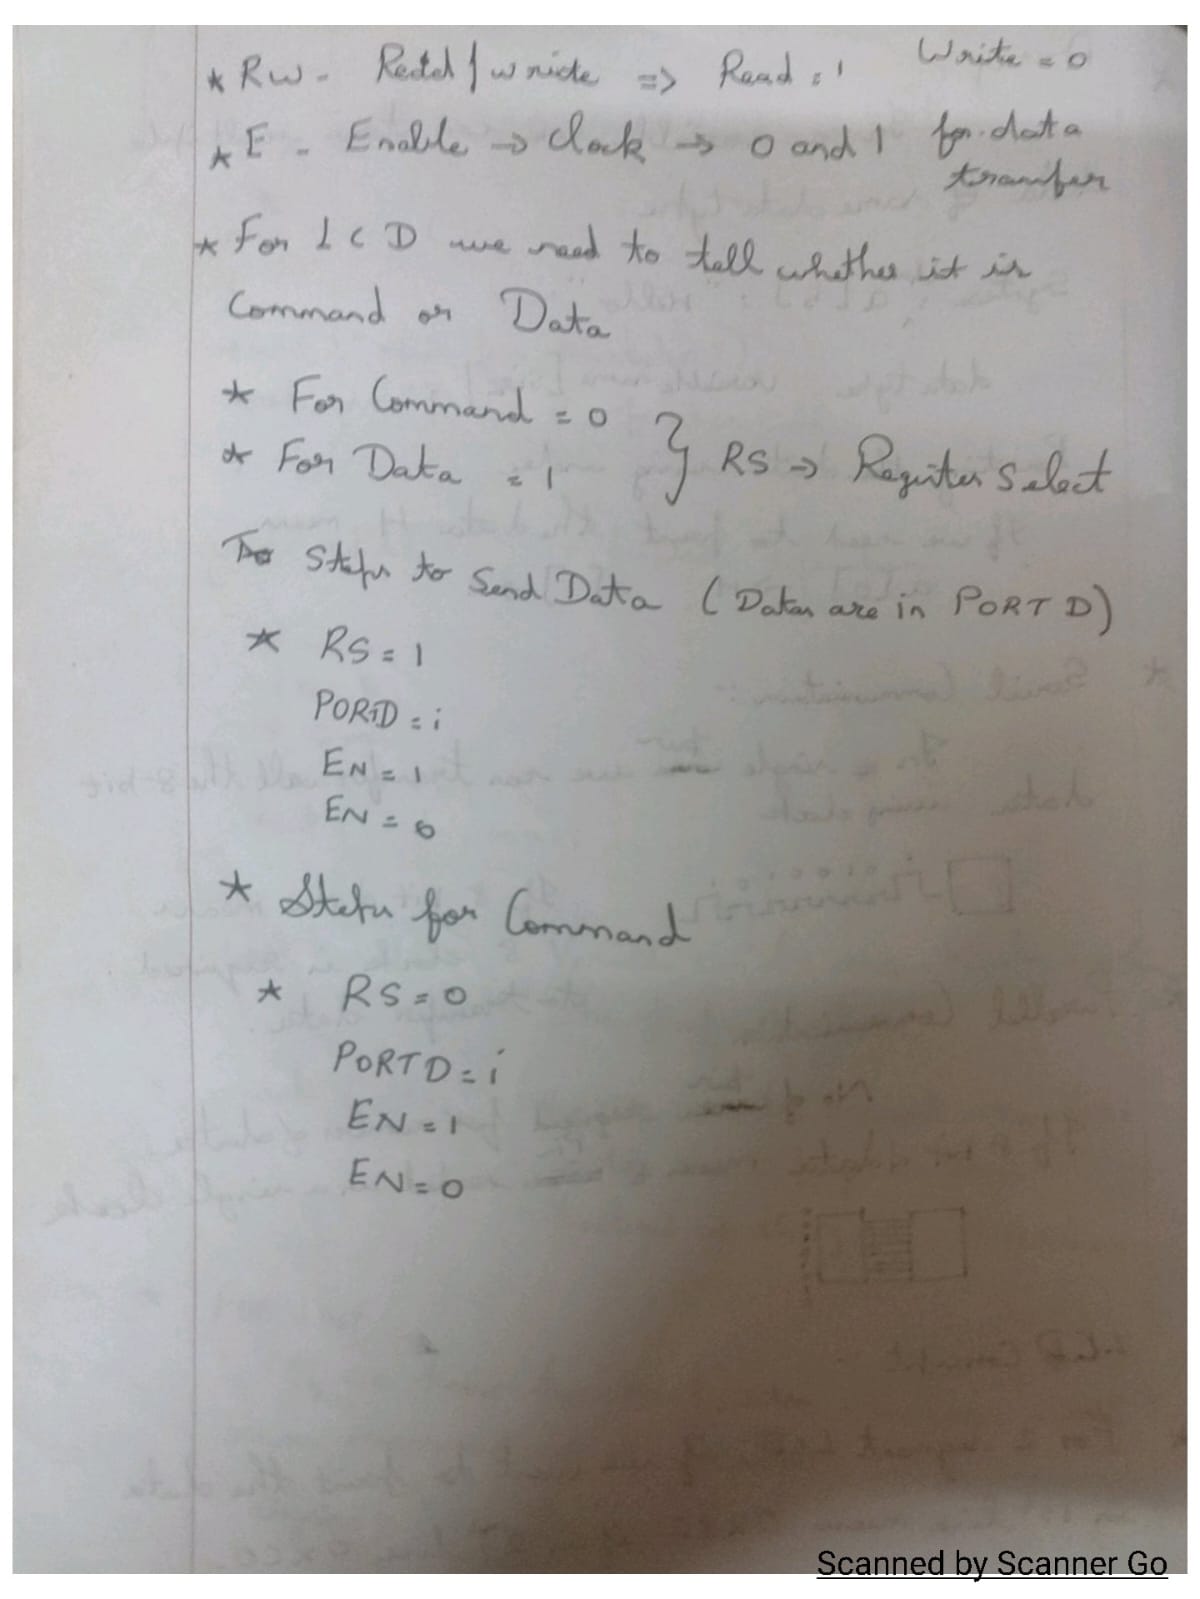 * RW - Read / write => Read = 1 Write = 0
* E - Enable → Clock → 0 and 1 for data
transfer
* For LCD we need to tell whether it is
Command or Data
* For Command = 0
* For Data = 1 } RS → Register Select
Steps to Send Data ( Datas are in PORT D )
* RS = 1
PORTD = i
EN = 1
EN = 0
* Steps for Command
* RS = 0
PORTD = i
EN = 1
EN = 0
Scanned by Scanner Go